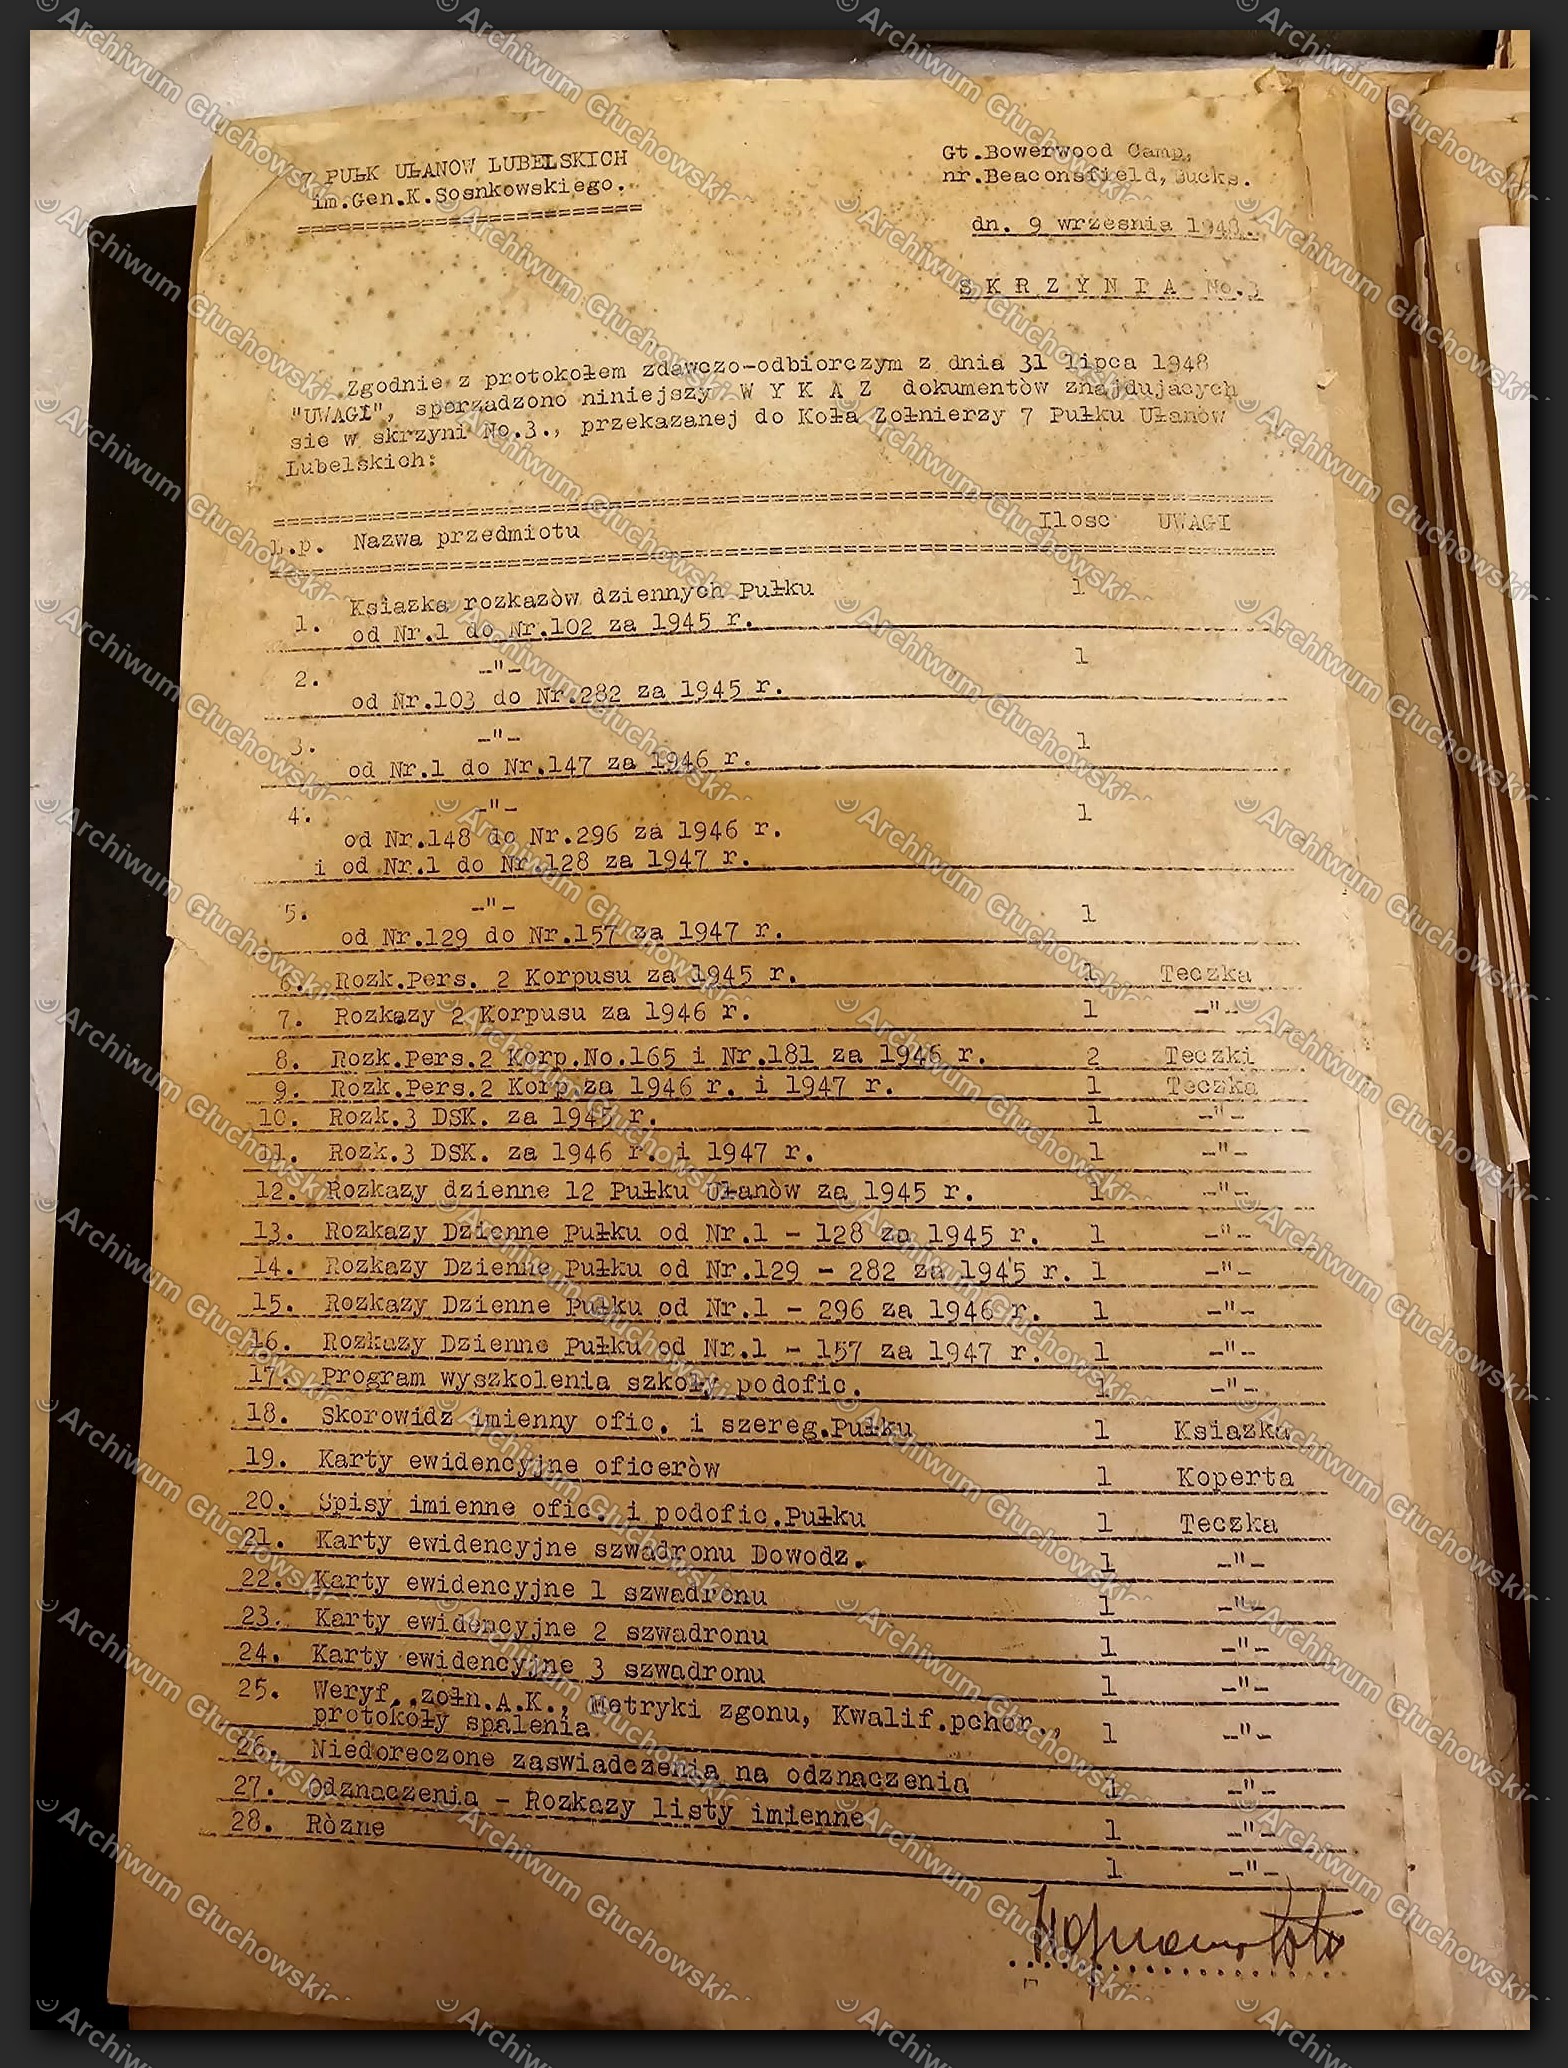 7 PUŁK UŁANOW LUBELSKICH
im.Gen.K.Sosnkowskiego.
Gt.Bowerwood Camp,
nr.Beaconsfield, Bucks.
dn. 9 wrzesnia 1948.
S K R Z Y N I A No.3
Zgodnie z protokołem zdawczo-odbiorczym z dnia 31 lipca 1948
"UWAGI", sporzadzono niniejszy W Y K A Z dokumentòw znajdujacych
sie w skrzyni No.3., przekazanej do Koła Zołnierzy 7 Pułku Ułanòw
Lubelskich:
L.p. Nazwa przedmiotu Ilosc UWAGI
1. Ksiazka rozkazòw dziennych Pułku 1
od Nr.1 do Nr.102 za 1945 r.
2. -"- 1
od Nr.103 do Nr.282 za 1945 r.
3. -"- 1
od Nr.1 do Nr.147 za 1946 r.
4. -"- 1
od Nr.148 do Nr.296 za 1946 r.
i od Nr.1 do Nr.128 za 1947 r.
5. -"- 1
od Nr.129 do Nr.157 za 1947 r.
6. Rozk.Pers. 2 Korpusu za 1945 r. 1 Teczka
7. Rozkazy 2 Korpusu za 1946 r. 1 -"-
8. Rozk.Pers.2 Korp.No.165 i Nr.181 za 1946 r. 2 Teczki
9. Rozk.Pers.2 Korp.za 1946 r. i 1947 r. 1 Teczka
10. Rozk.3 DSK. za 1945 r. 1 -"-
11. Rozk.3 DSK. za 1946 r. i 1947 r. 1 -"-
12. Rozkazy dzienne 12 Pułku Ułanòw za 1945 r. 1 -"-
13. Rozkazy Dzienne Pułku od Nr.1 - 128 za 1945 r. 1 -"-
14. Rozkazy Dzienne Pułku od Nr.129 - 282 za 1945 r. 1 -"-
15. Rozkazy Dzienne Pułku od Nr.1 - 296 za 1946 r. 1 -"-
16. Rozkazy Dzienne Pułku od Nr.1 - 157 za 1947 r. 1 -"-
17. Program wyszkolenia szkoły podofic. 1 -"-
18. Skorowidz imienny ofic. i szereg.Pułku 1 Ksiazka
19. Karty ewidencyjne oficeròw 1 Koperta
20. Spisy imienne ofic. i podofic.Pułku 1 Teczka
21. Karty ewidencyjne szwadronu Dowodz. 1 -"-
22. Karty ewidencyjne 1 szwadronu 1 -"-
23. Karty ewidencyjne 2 szwadronu 1 -"-
24. Karty ewidencyjne 3 szwadronu 1 -"-
25. Weryf. zołn.A.K., Metryki zgonu, Kwalif.pchor.,
protokoły spalenia 1 -"-
26. Niedoreczone zaswiadczenia na odznaczenia 1 -"-
27. Odznaczenia - Rozkazy listy imienne 1 -"-
28. Ròzne 1 -"-
© Archiwum Głuchowskich